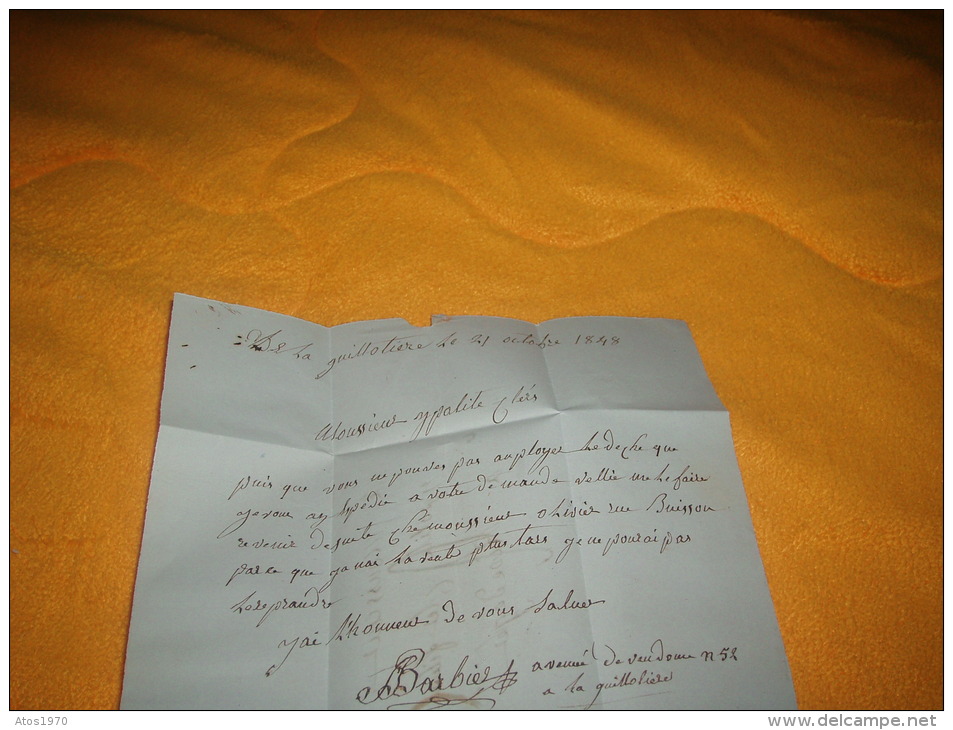 De La guillotiere Le 21 octobre 1848
Moussieur ypolite Clers
puis que vous ne pouves pas anployer Le deche que
je vous ay Expedié a votre demande vellié me Le faire
revenir de suite Ché moussieur olivier rue Buisson
parce que jen ai La vente plus tars je ne pourai pas
Le reprandre
jai L'honneur de vous Saluer
Barbier avenue de vendome n 52
a La guillotiere
Atos1970
delcampe.net